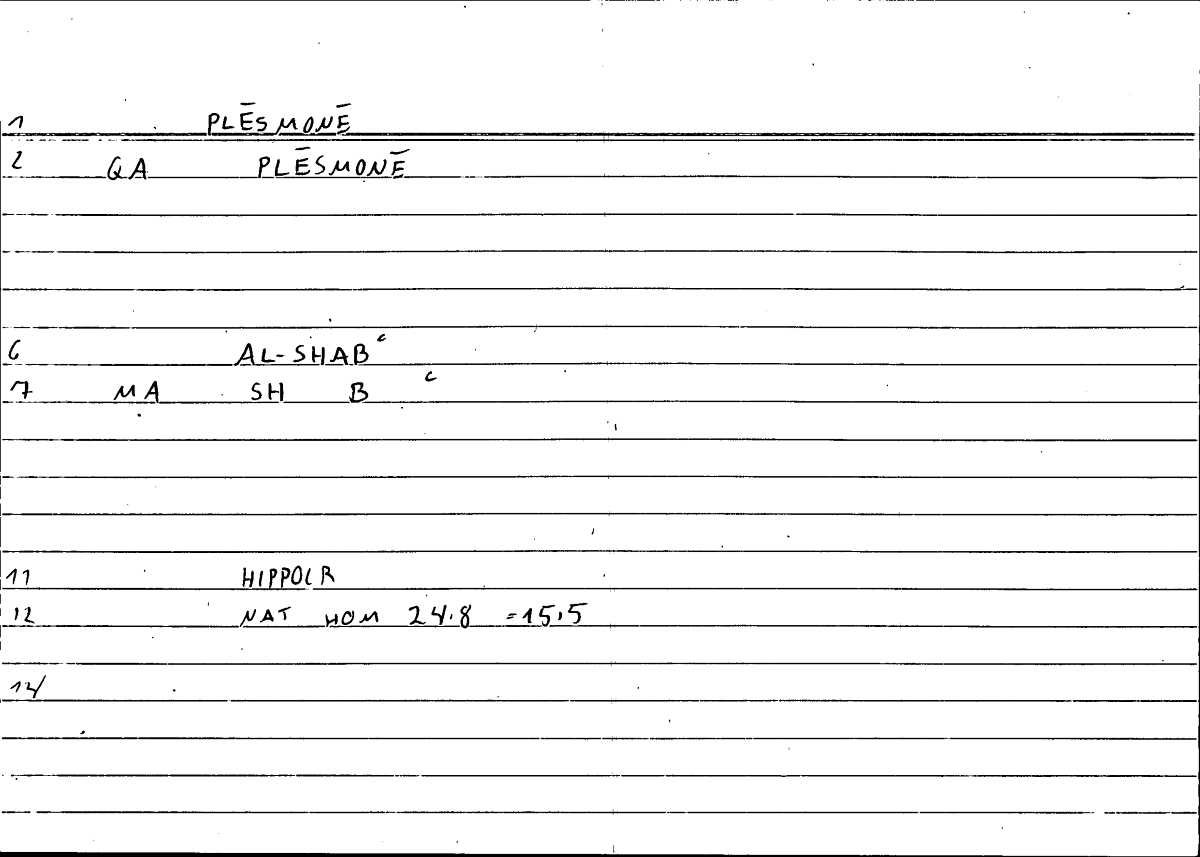 1 PLĒSMONĒ
2 QA PLĒSMONĒ
6 AL-SHABʿ
7 MA SH B ʿ
11 HIPPOCR
12 NAT HOM 24.8 =15,5
14